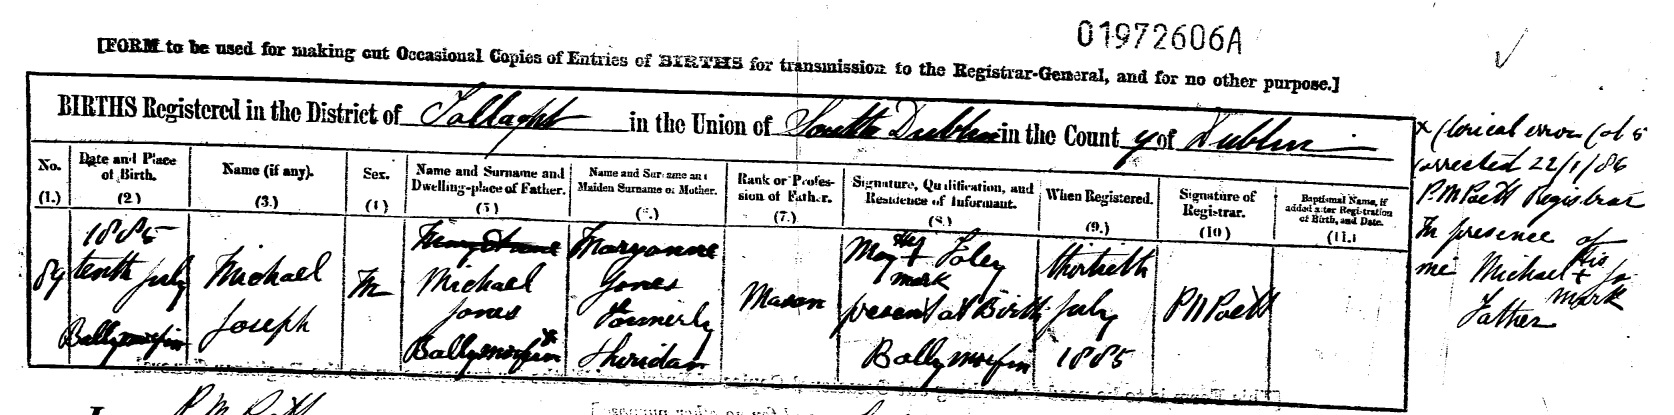 01972606A
[FORM to be used for making out Occasional Copies of Entries of BIRTHS for transmission to the Registrar-General, and for no other purpose.]
BIRTHS Registered in the District of Tallaght in the Union of South Dublin in the County of Dublin
No. (1.)
Date and Place of Birth. (2.)
Name (if any). (3.)
Sex. (4)
Name and Surname and Dwelling-place of Father. (5)
Name and Surname and Maiden Surname of Mother. (6.)
Rank or Profession of Father. (7.)
Signature, Qualification, and Residence of Informant. (8.)
When Registered. (9.)
Signature of Registrar. (10)
Baptismal Name, if added after Registration of Birth, and Date. (11.)
89
1885
tenth July
Michael
Joseph
M
Mary Anne
Michael
Jones
Maryanne
Jones
Formerly
Sheridan
Mason
May Her + mark Foley
present at Birth
thirtieth
July
1885
P M Poett
x Clerical error Col 5
corrected 22/1/86
P. M Poett Registrar
In presence of
me Michael His + mark
Father